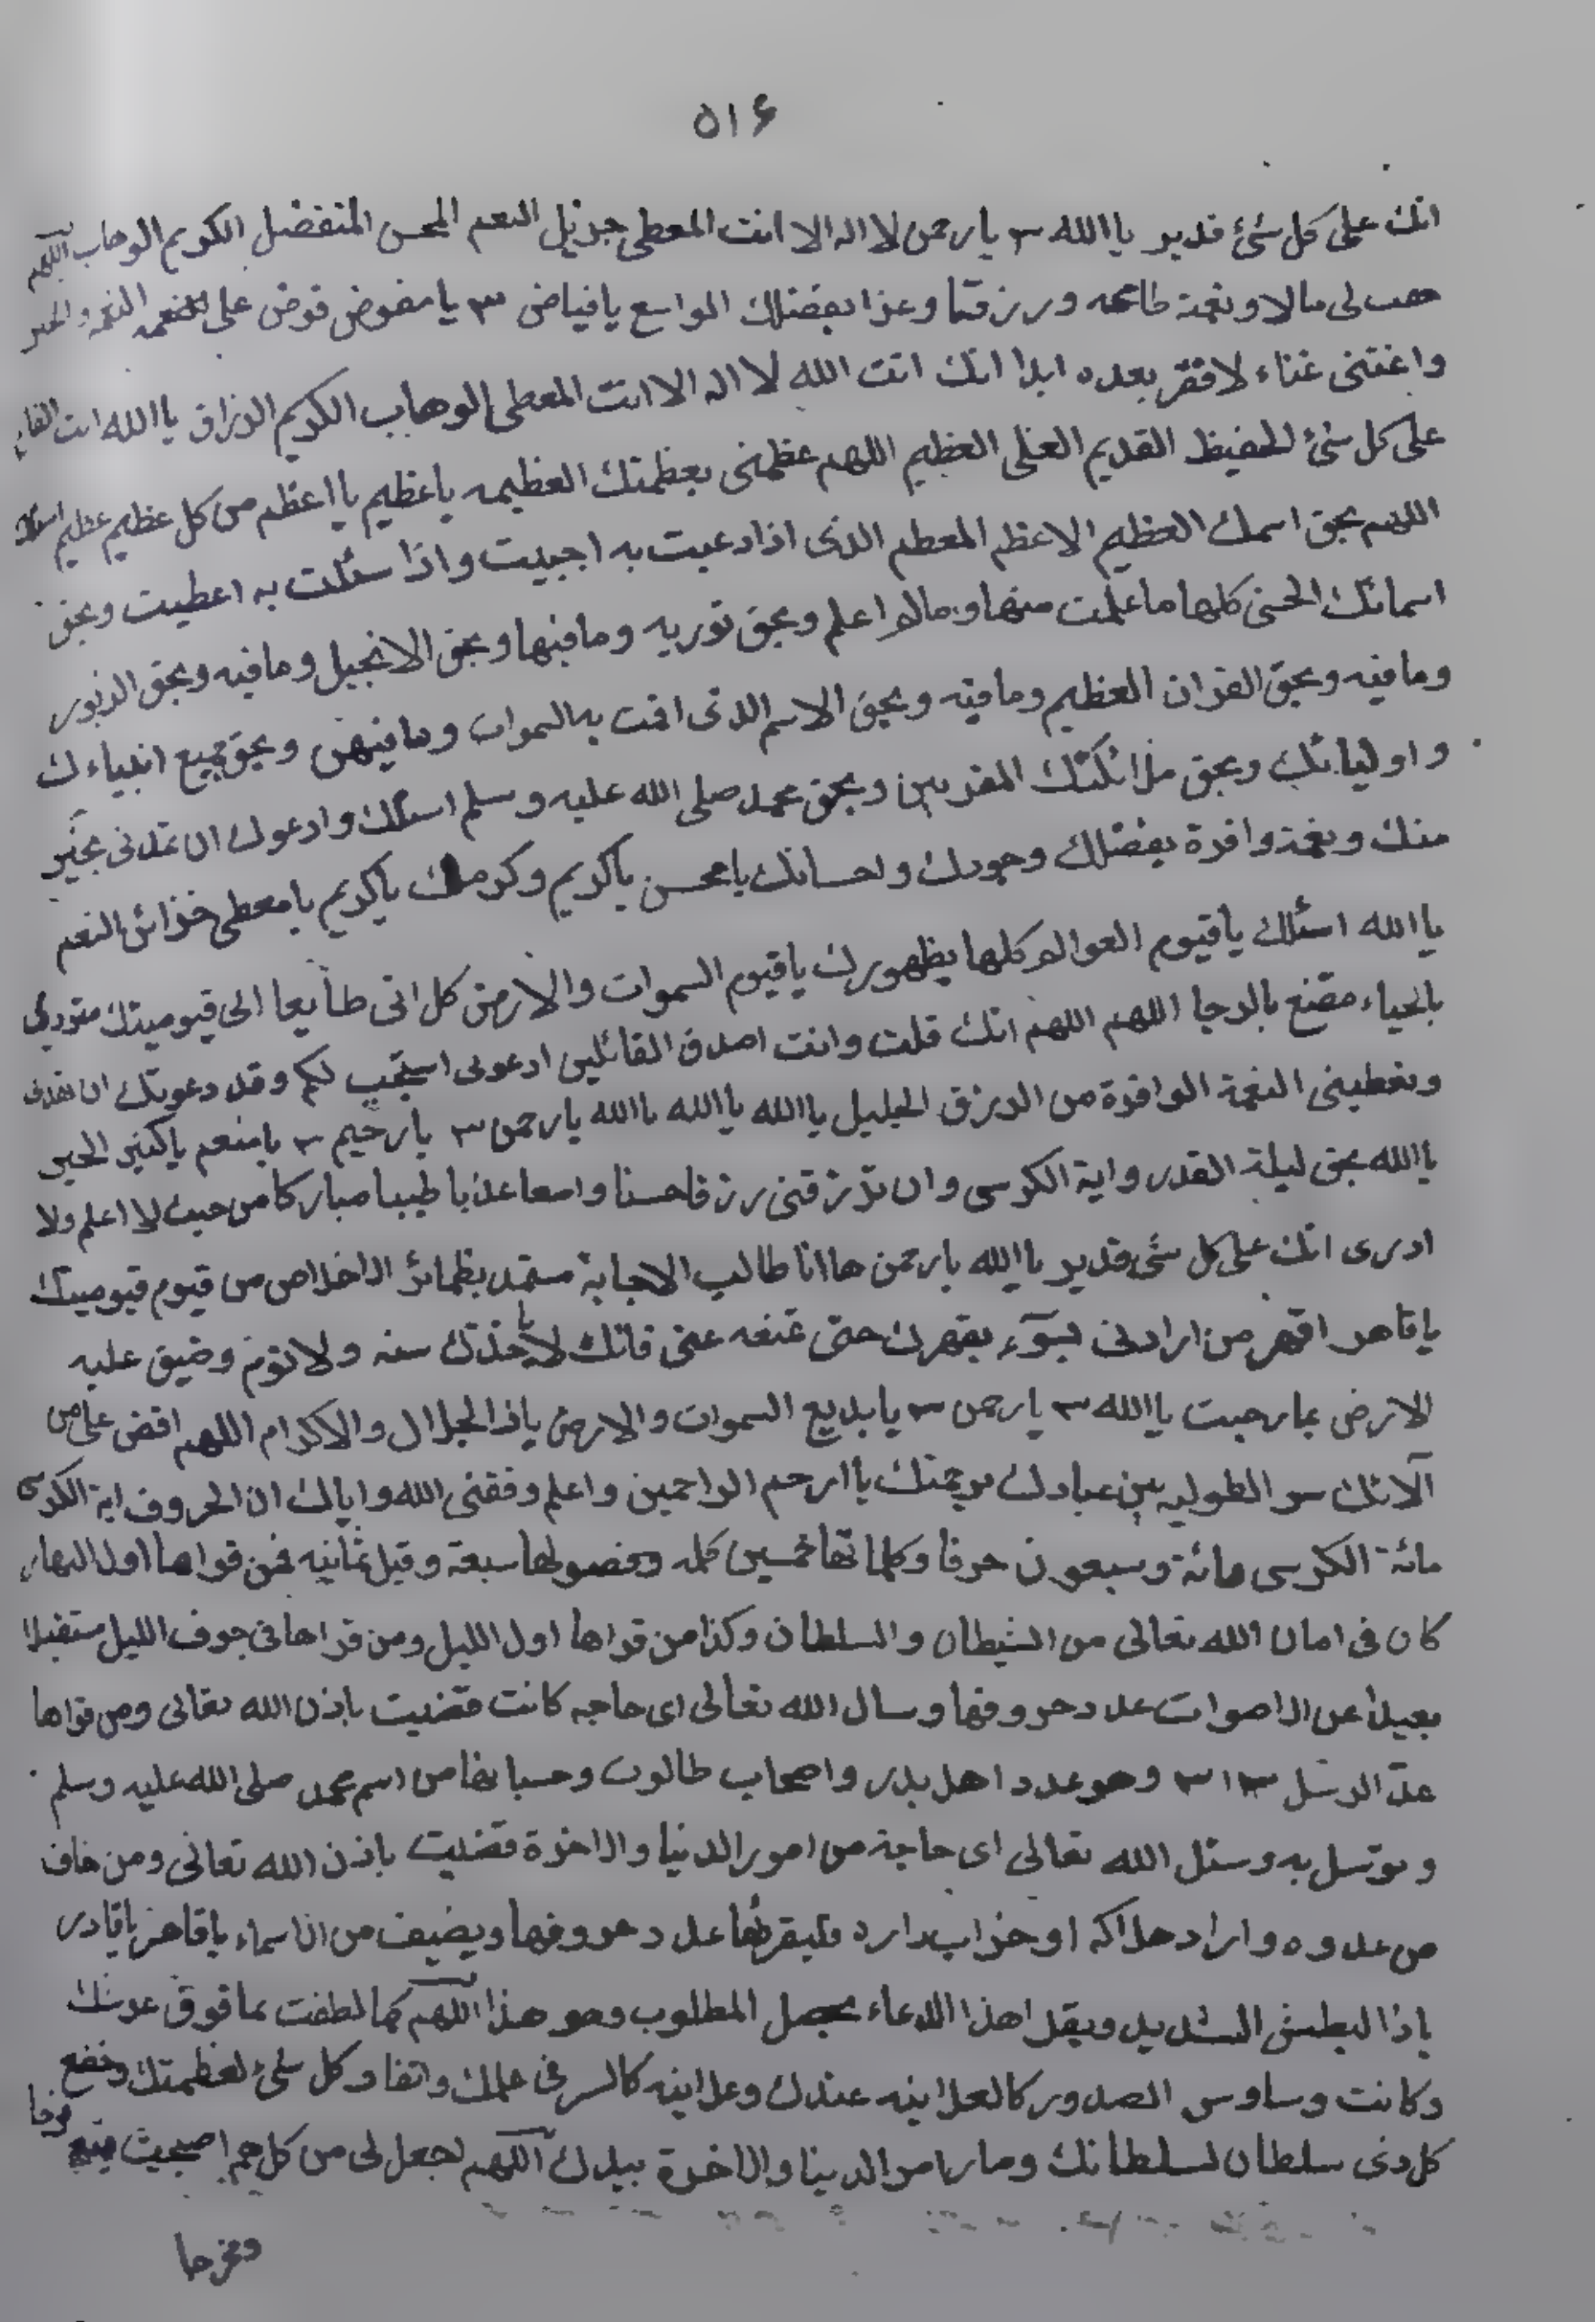 ٥١۶
انك على كل شئ قدير ياالله ٣ يارحمن لا اله الا انت المعطى جزيل النعم المحسن المتفضل الكريم الوهاب اللهم
هب لى مالا ونعمة ورزقا وعزا بفضلك الواسع يافياض ٣ يا مفوض فوض على النعمه والخير
واغننى غناء لافقر بعده ابدا انك انت الله لا اله الا انت المعطى الوهاب الكريم الرزاق ياالله انت
على كل شئ الحفيظ القديم العلى العظيم اللهم عظمنى بعظمتك العظيمه ياعظيم يااعظم من كل عظيم عظيم
اللهم بحق اسمك العظيم الاعظم المعظم الذى اذا دعيت به اجبيت واذا سئلت به اعطيت وبحق
اسمائك الحسنى كلها ما علمت منها ومالم اعلم وبحق توريه ومافيها وبحق الانجيل ومافيه وبحق الزبور
ومافيه وبحق القران العظيم ومافيه وبحق الاسم الذى اقمت به السموات ومافيهن وبحق جميع انبياءك
واوليائك وبحق ملائكتك المقربين وبحق محمد صلى الله عليه وسلم اسئلك وادعوك ان تمدنى بخير
منك ونعمة وافرة بفضلك وجودك واحسانك يامحسن ياكريم وكرمك ياكريم يامعطى خزائن النعم
ياالله اسئلك ياقيوم العوالم كلها بظهورك ياقيوم السموات والارض كل اتى طايعا الى قيوميتك
بالحياء مقنع بالرجا اللهم اللهم انك قلت وانت اصدق القائلين ادعونى استجب لكم وقد دعوتك ان
وتعطينى النعمة الوافرة من الرزق الجليل ياالله ياالله ياالله يارحمن ٣ يارحيم ٣ يامنعم ياكثير الخير
ياالله بحق ليلة القدر واية الكرسى وان ترزقنى رزقا حسنا واسعا عذبا طيبا مباركا من حيث لا اعلم ولا
ادرى انك على كل شئ قدير ياالله يارحمن ها انا طالب الاجابة مستمد بظمائر الاخلاص من قيوم قيوميتك
ياقاهر اقهر من ارادنى بسوء بقهرك حتى تمنعه عنى فانك لا تأخذك سنه ولا نوم وضيق عليه
الارض بما رحبت ياالله ٣ يارحمن ٣ يابديع السموات والارض ياذا الجلال والاكرام اللهم افض على من
آلائك سر الطوليه بين عبادك برحمتك ياارحم الراحمين واعلم وفقنى الله واياك ان الحروف اية الكرسى
مائة الكرسى مائة وسبعون حرفا وكلماتها خمسين كلمه وفصولها سبعة وقيل ثمانيه فمن قراها اول النهار
كان فى امان الله تعالى من الشيطان والسلطان وكذا من قراها اول الليل ومن قراها فى جوف الليل مستقبلا
بعيدا عن الاصوات عدد حروفها وسال الله تعالى اى حاجه كانت قضيت باذن الله تعالى ومن قراها
عدة الرسل ٣١٣ وهو عدد اهل بدر واصحاب طالوت وحسبانها من اسم محمد صلى الله عليه وسلم
وتوسل به وسئل الله تعالى اى حاجة من امور الدنيا والاخرة قضيت باذن الله تعالى ومن خاف
من عدوه واراد هلاكه او خراب داره فليقرئها عدد حروفها ويضيف من الاسماء ياقاهر ياقادر
ياذا البطش الشديد ويقرا هذا الدعاء يحصل المطلوب وهو هذا اللهم كما لطفت بما فوق عرشك
وكانت وساوس الصدور كالعلانيه عندك وعلانيه كالسر فى علمك وانقاد كل شئ لعظمتك وخضع
كل ذى سلطان لسلطانك وصار امر الدنيا والاخرة بيدك اللهم اجعل لى من كل هم اصبحت فيه فرجا
ومخرجا